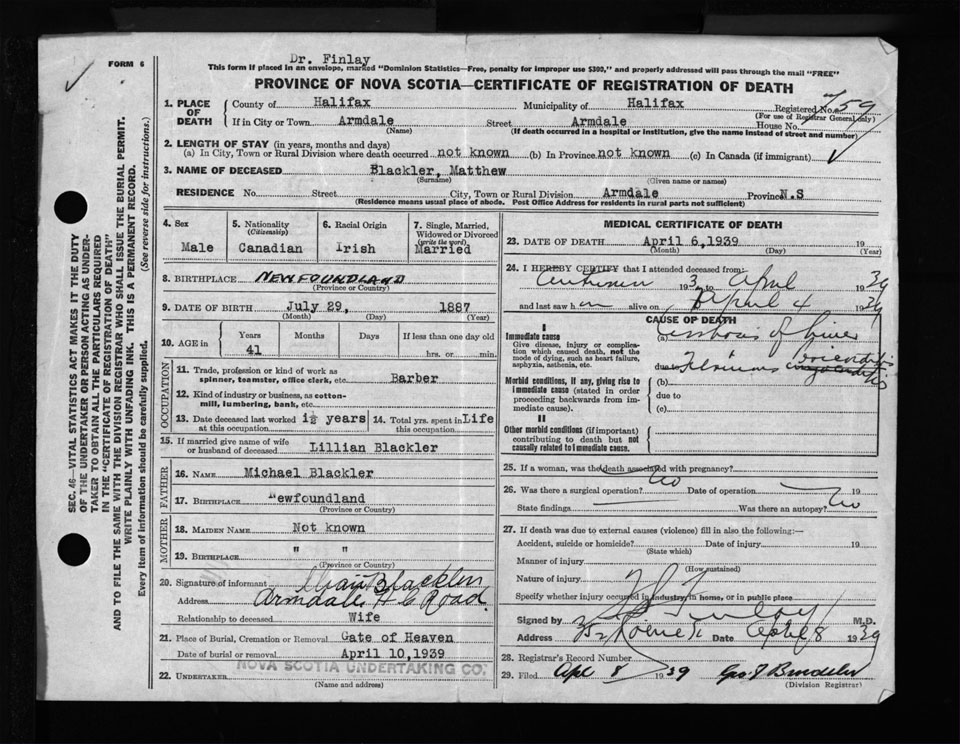 Dr. Finlay
FORM 6
This form if placed in an envelope, marked "Dominion Statistics—Free, penalty for improper use $300," and properly addressed will pass through the mail "FREE"
PROVINCE OF NOVA SCOTIA—CERTIFICATE OF REGISTRATION OF DEATH
SEC. 46—VITAL STATISTICS ACT MAKES IT THE DUTY
OF THE UNDERTAKER OR PERSON ACTING AS UNDER-
TAKER TO OBTAIN ALL THE PARTICULARS REQUIRED
IN THE "CERTIFICATE OF REGISTRATION OF DEATH"
AND TO FILE THE SAME WITH THE DIVISION REGISTRAR WHO SHALL ISSUE THE BURIAL PERMIT.
WRITE PLAINLY WITH UNFADING INK. THIS IS A PERMANENT RECORD.
Every item of information should be carefully supplied. (See reverse side for instructions.)
1. PLACE OF DEATH County of Halifax Municipality of Halifax Registered No. 759
(For use of Registrar General only)
If in City or Town Armdale Street Armdale House No.
(Name) (If death occurred in a hospital or institution, give the name instead of street and number)
2. LENGTH OF STAY (in years, months and days)
(a) In City, Town or Rural Division where death occurred not known (b) In Province not known (c) In Canada (if immigrant)
3. NAME OF DECEASED Blackler, Matthew
(Surname) (Given name or names)
RESIDENCE No. Street City, Town or Rural Division Armdale Province N.S
(Residence means usual place of abode. Post Office Address for residents in rural parts not sufficient)
4. Sex 5. Nationality (Citizenship) 6. Racial Origin 7. Single, Married, Widowed or Divorced (write the word)
Male Canadian Irish Married
8. BIRTHPLACE NEWFOUNDLAND
(Province or Country)
9. DATE OF BIRTH July 29, 1887
(Month) (Day) (Year)
10. AGE in Years Months Days If less than one day old
41 hrs. or min.
OCCUPATION
11. Trade, profession or kind of work as
spinner, teamster, office clerk, etc. Barber
12. Kind of industry or business, as cotton-
mill, lumbering, bank, etc.
13. Date deceased last worked at this occupation 1½ years 14. Total yrs. spent in this occupation Life
15. If married give name of wife
or husband of deceased Lillian Blackler
FATHER
16. NAME Michael Blackler
17. BIRTHPLACE Newfoundland
(Province or Country)
MOTHER
18. MAIDEN NAME Not known
19. BIRTHPLACE " "
(Province or Country)
20. Signature of informant Blackler
Address Armdale Road
Relationship to deceased Wife
21. Place of Burial, Cremation or Removal Gate of Heaven
Date of burial or removal April 10,1939
NOVA SCOTIA UNDERTAKING CO.
22. UNDERTAKER
(Name and address)
MEDICAL CERTIFICATE OF DEATH
23. DATE OF DEATH April 6,1939 19
(Month) (Day) (Year)
24. I HEREBY CERTIFY that I attended deceased from:
193 to April 1939
and last saw h alive on April 4 1939
CAUSE OF DEATH
I
Immediate cause
Give disease, injury or complica-
tion which caused death, not the
mode of dying, such as heart failure,
asphyxia, asthenia, etc.
(a) of liver
due to
Morbid conditions, if any, giving rise to
immediate cause (stated in order
proceeding backwards from im-
mediate cause).
(b)
due to
(c)
II
Other morbid conditions (if important)
contributing to death but not
causally related to immediate cause.
25. If a woman, was the death associated with pregnancy?
26. Was there a surgical operation? No Date of operation 19
State findings Was there an autopsy? No
27. If death was due to external causes (violence) fill in also the following:—
Accident, suicide or homicide? Date of injury 19
(State which)
Manner of injury
(How sustained)
Nature of injury
Specify whether injury occurred in industry, in home, or in public place
Signed by Finlay M.D.
Address Date April 8 1939
28. Registrar's Record Number
29. Filed Apl 8 1939
(Division Registrar)